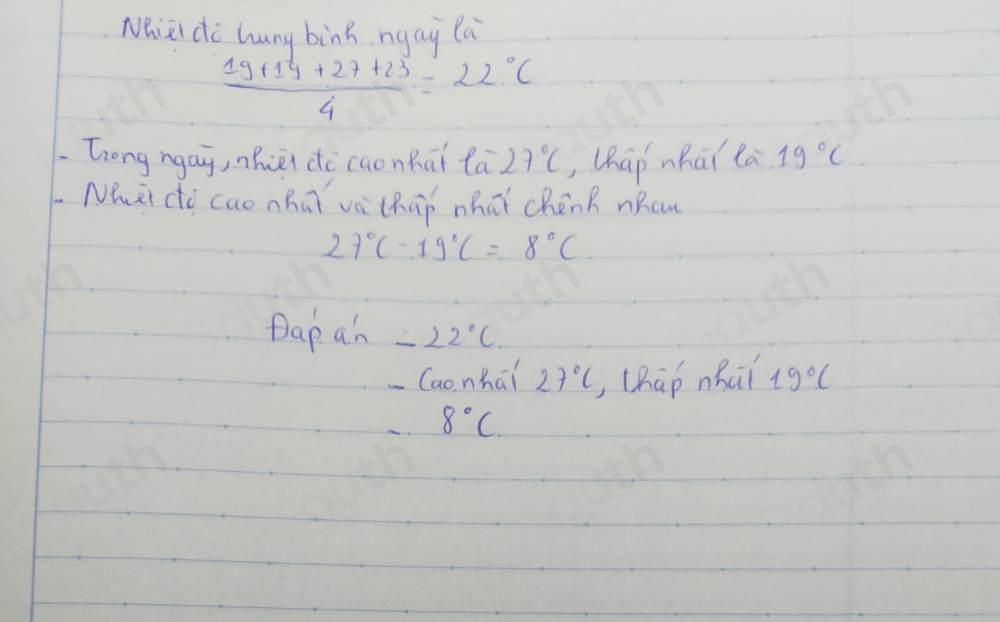 Nhiệt độ trung bình ngày là
19+19+27+23 / 4 = 22°C
- Trong ngày, nhiệt độ cao nhất là 27°C, thấp nhất là 19°C
- Nhiệt độ cao nhất và thấp nhất chênh nhau
27°C - 19°C = 8°C
Đáp án - 22°C.
- Cao nhất 27°C, thấp nhất 19°C
- 8°C.